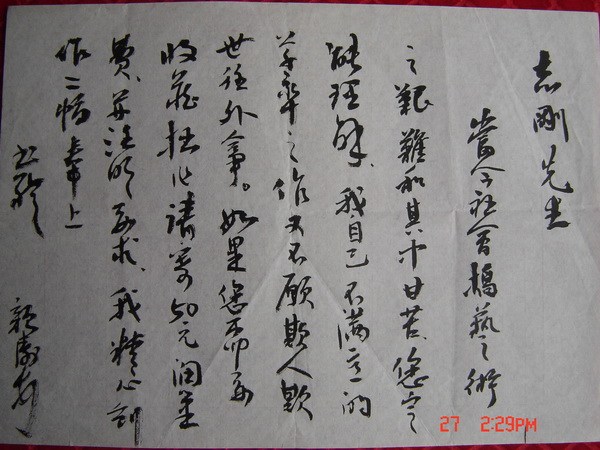 志剛先生
當今社會搞藝術
之艱難和其中甘苦、您定
能理解、我自己不滿意的
草率之作又不願欺人欺
世往外拿。如果您要
收藏拙作請寄50元潤筆
費、并注明要求、我精心創
作二幅奉上
此致
27 2:29PM